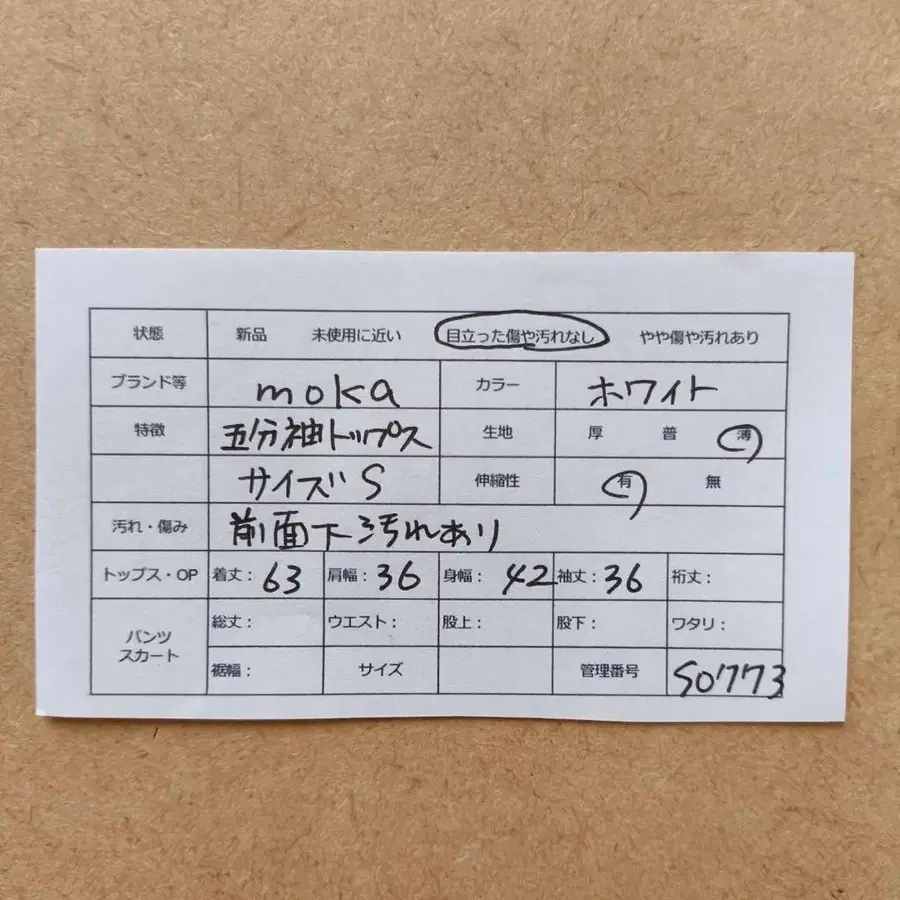 状態 新品 未使用に近い 目立った傷や汚れなし やや傷や汚れあり
ブランド等 moka カラー ホワイト
特徴 五分袖トップス 生地 厚 普 薄
サイズ S 伸縮性 有 無
汚れ・傷み 前面下汚れあり
トップス・OP 着丈: 63 肩幅: 36 身幅: 42 袖丈: 36 裄丈:
パンツ スカート 総丈: ウエスト: 股上: 股下: ワタリ:
裾幅: サイズ 管理番号 S0773